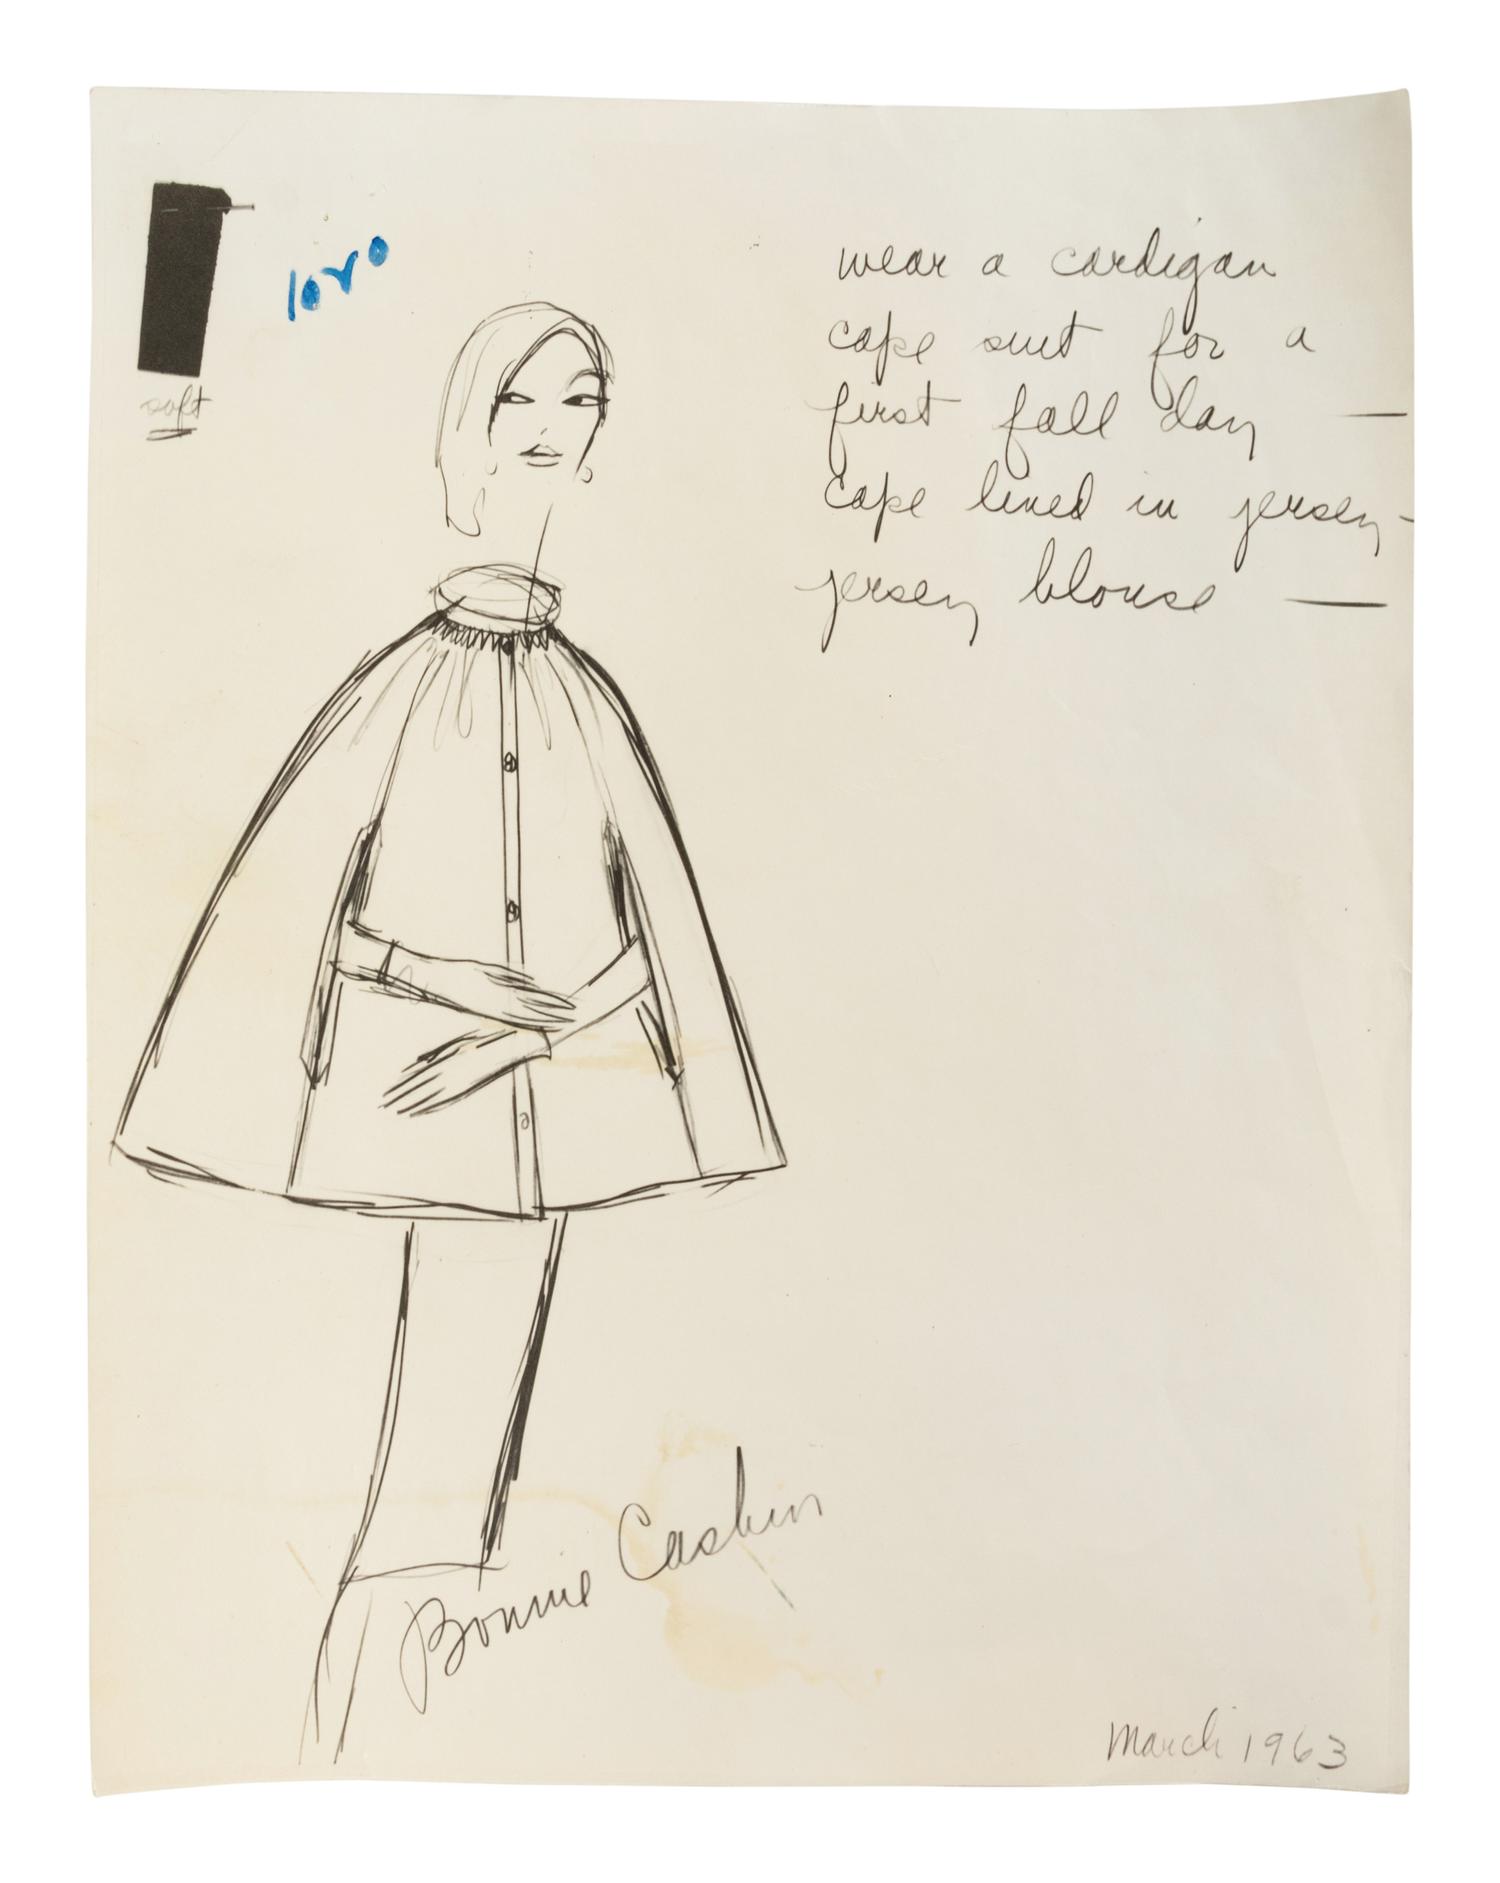 soft
1020
wear a cardigan
cape suit for a
first fall day —
cape lined in jersey -
jersey blouse —
Bonnie Cashin
March 1963